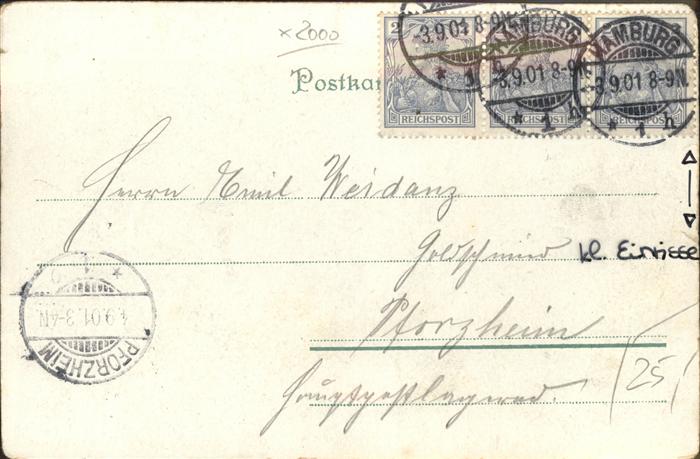 x2000
2
REICHSPOST
REICHSPOST
REICHSPOST
HAMBURG
3.9.01 8-9N
* 1 h
HAMBURG
3.9.01 8-9N
* 1 h
Postkar
Herrn Emil Weidanz
Goldschmied
kl. Einrisse
Pforzheim
Hauptpostlagernd.
PFORZHEIM
4.9.01. 3-4N
* 1
25